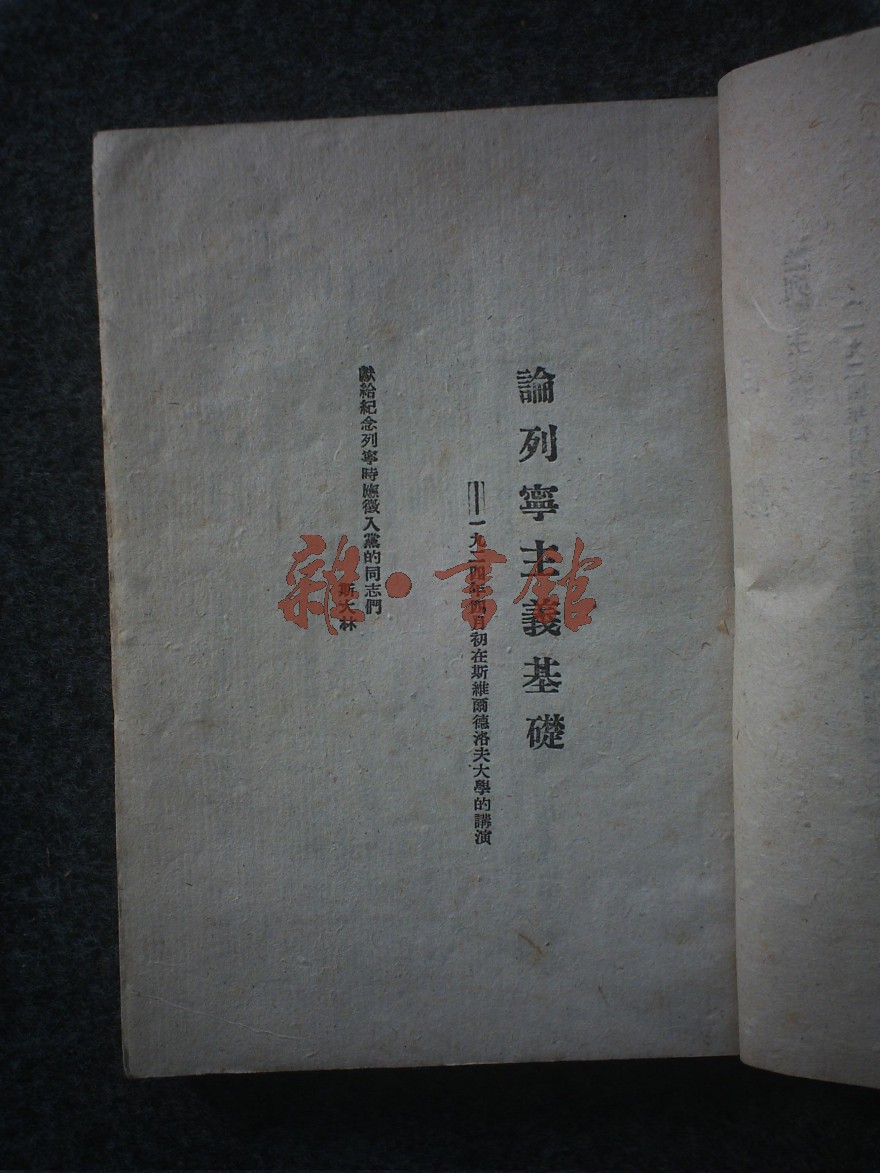 論列寧主義基礎
——一九二四年四月初在斯維爾德洛夫大學的講演
獻給紀念列寧時應徵入黨的同志們
斯大林
雜·書館